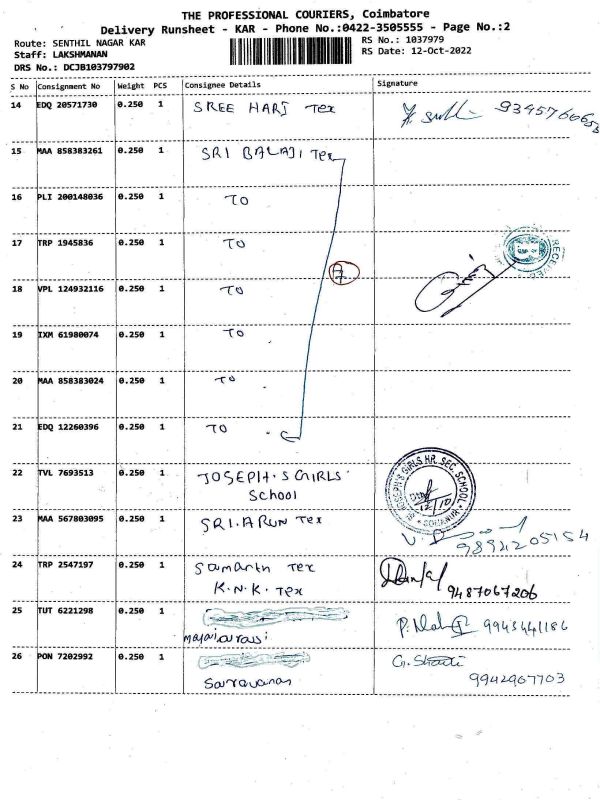 THE PROFESSIONAL COURIERS, Coimbatore
Delivery Runsheet - KAR - Phone No.:0422-3505555 - Page No.:2
Route: SENTHIL NAGAR KAR
Staff: LAKSHMANAN
DRS No.: DCJB103797902
RS No.: 1037979
RS Date: 12-Oct-2022
S No Consignment No Weight PCS Consignee Details Signature
14 EDQ 20571730 0.250 1 SREE HARI Tex
15 MAA 858383261 0.250 1 SRI BALAJI Tex
16 PLI 200148036 0.250 1 TO
17 TRP 1945836 0.250 1 TO
RECEIVED
18 VPL 124932116 0.250 1 TO
19 IXM 61980074 0.250 1 TO
20 MAA 858383024 0.250 1 TO
21 EDQ 12260396 0.250 1 TO
22 TVL 7693513 0.250 1 JOSEPH.S GIRLS'
School
ST. JOSEPH'S GIRLS HR. SEC. SCHOOL
12/10
23 MAA 567803095 0.250 1 SRI.ARUN Tex
9894205154
24 TRP 2547197 0.250 1 Samarth Tex
K.N.K. Tex 9487067206
25 TUT 6221298 0.250 1
9943441186
26 PON 7202992 0.250 1
Saravanan 9942967703